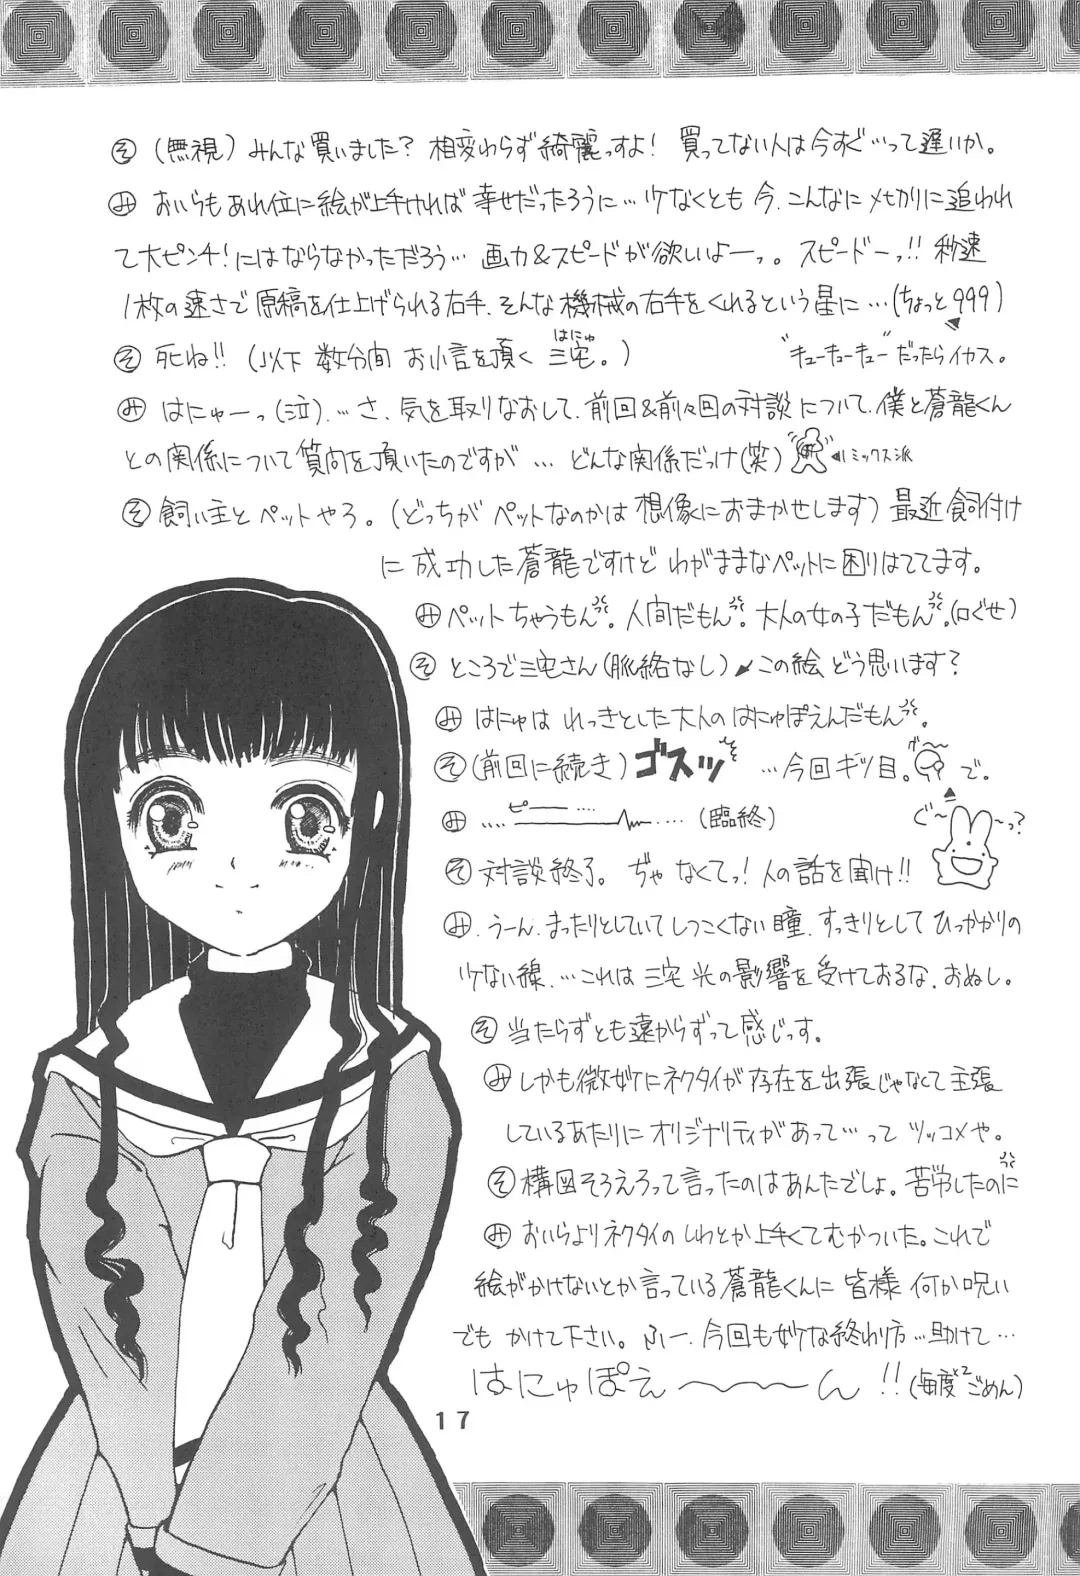 そ (無視) みんな買いました? 相変わらず綺麗っすよ! 買ってない人は今すぐ…って遅いか。
み おいらもあれ位に絵が上手ければ幸せだったろうに…少なくとも今、こんなにメ切りに追われ
て大ピンチ!にはならなかっただろう… 画力&スピードが欲しいよーっ。スピードーっ!! 秒速
1枚の速さで原稿を仕上げられる右手、そんな機械の右手をくれるという星に…(ちょっと999)
そ 死ね!! (以下 数分間 お小言を頂く 三宅。)
はにゅ
"キューキューキュー"だったらイカス。
み はにゅーっ(泣)。…さ、気を取りなおして、前回&前々回の対談について、僕と蒼龍くん
との関係について質問を頂いたのですが … どんな関係だっけ(笑)
ミックス派
そ 飼い主とペットやろ。(どっちがペットなのかは想像におまかせします) 最近餌付け
に成功した蒼龍ですけど わがままなペットに困りはててます。
み ペットちゃうもん。人間だもん。大人の女の子だもん。(口ぐせ)
そ ところで三宅さん(脈絡なし) この絵 どう思います?
み はにゅは れっきとした大人のはにゅぽえんだもん。
そ (前回に続き) ゴスッ …今回ギソ目。で。
み …. ピー …. …. (臨終)
ぐ〜 〜っ?
そ 対談終了。ぢゃなくてっ! 人の話を聞け!!
み. うーん、まったりとしていてしつこくない瞳、すっきりとしてひっかかりの
少ない線、…これは 三宅 光の影響を受けておるな、おぬし。
そ 当たらずとも遠からずって感じっす。
み しかも微妙にネクタイが存在を出張じゃなくて主張
しているあたりに オリジナリティがあって…って ツッコメや。
そ 構図そろえろって言ったのはあんたでしょ。苦労したのに
み おいらよりネクタイのしわとか上手くてむかついた。これで
絵がかけないとか言っている蒼龍くんに皆様 何か呪い
でも かけて下さい。ふー、今回も妙な終わり方…助けて…
はにゅぽえ〜〜〜ん!! (毎度×2ごめん)
17